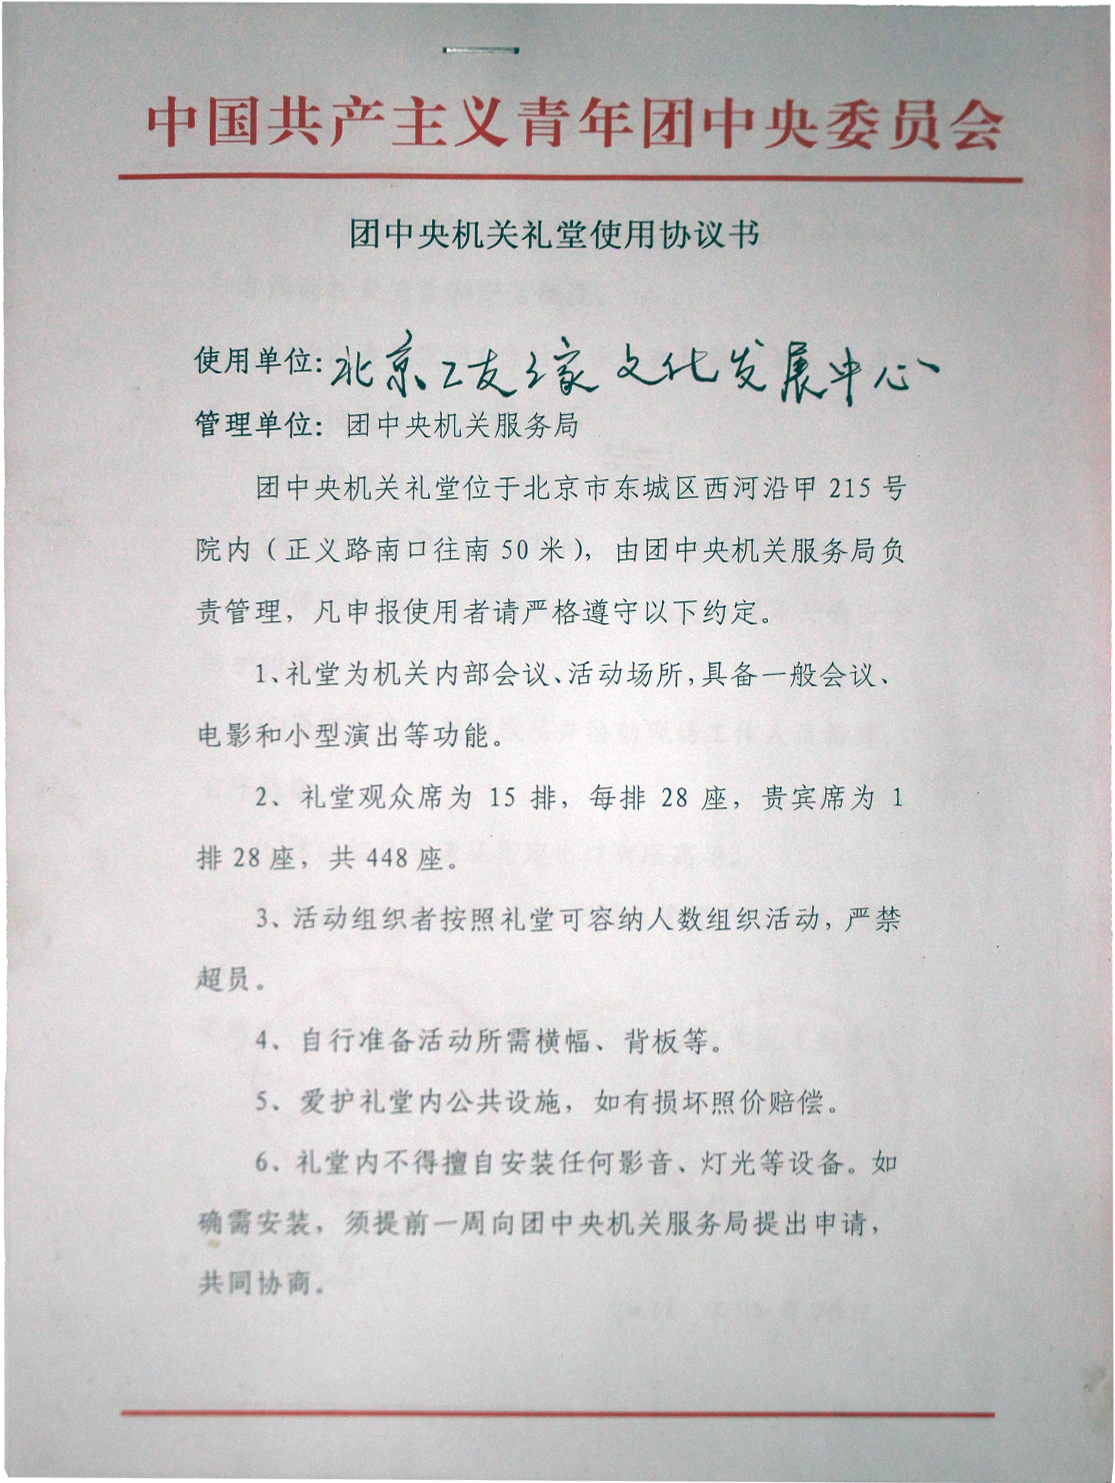 中国共产主义青年团中央委员会
团中央机关礼堂使用协议书
使用单位:北京工友之家文化发展中心
管理单位：团中央机关服务局
团中央机关礼堂位于北京市东城区西河沿甲 215 号
院内（正义路南口往南 50 米），由团中央机关服务局负
责管理，凡申报使用者请严格遵守以下约定。
1、礼堂为机关内部会议、活动场所，具备一般会议、
电影和小型演出等功能。
2、礼堂观众席为 15 排，每排 28 座，贵宾席为 1
排 28 座，共 448 座。
3、活动组织者按照礼堂可容纳人数组织活动，严禁
超员。
4、自行准备活动所需横幅、背板等。
5、爱护礼堂内公共设施，如有损坏照价赔偿。
6、礼堂内不得擅自安装任何影音、灯光等设备。如
确需安装，须提前一周向团中央机关服务局提出申请，
共同协商。